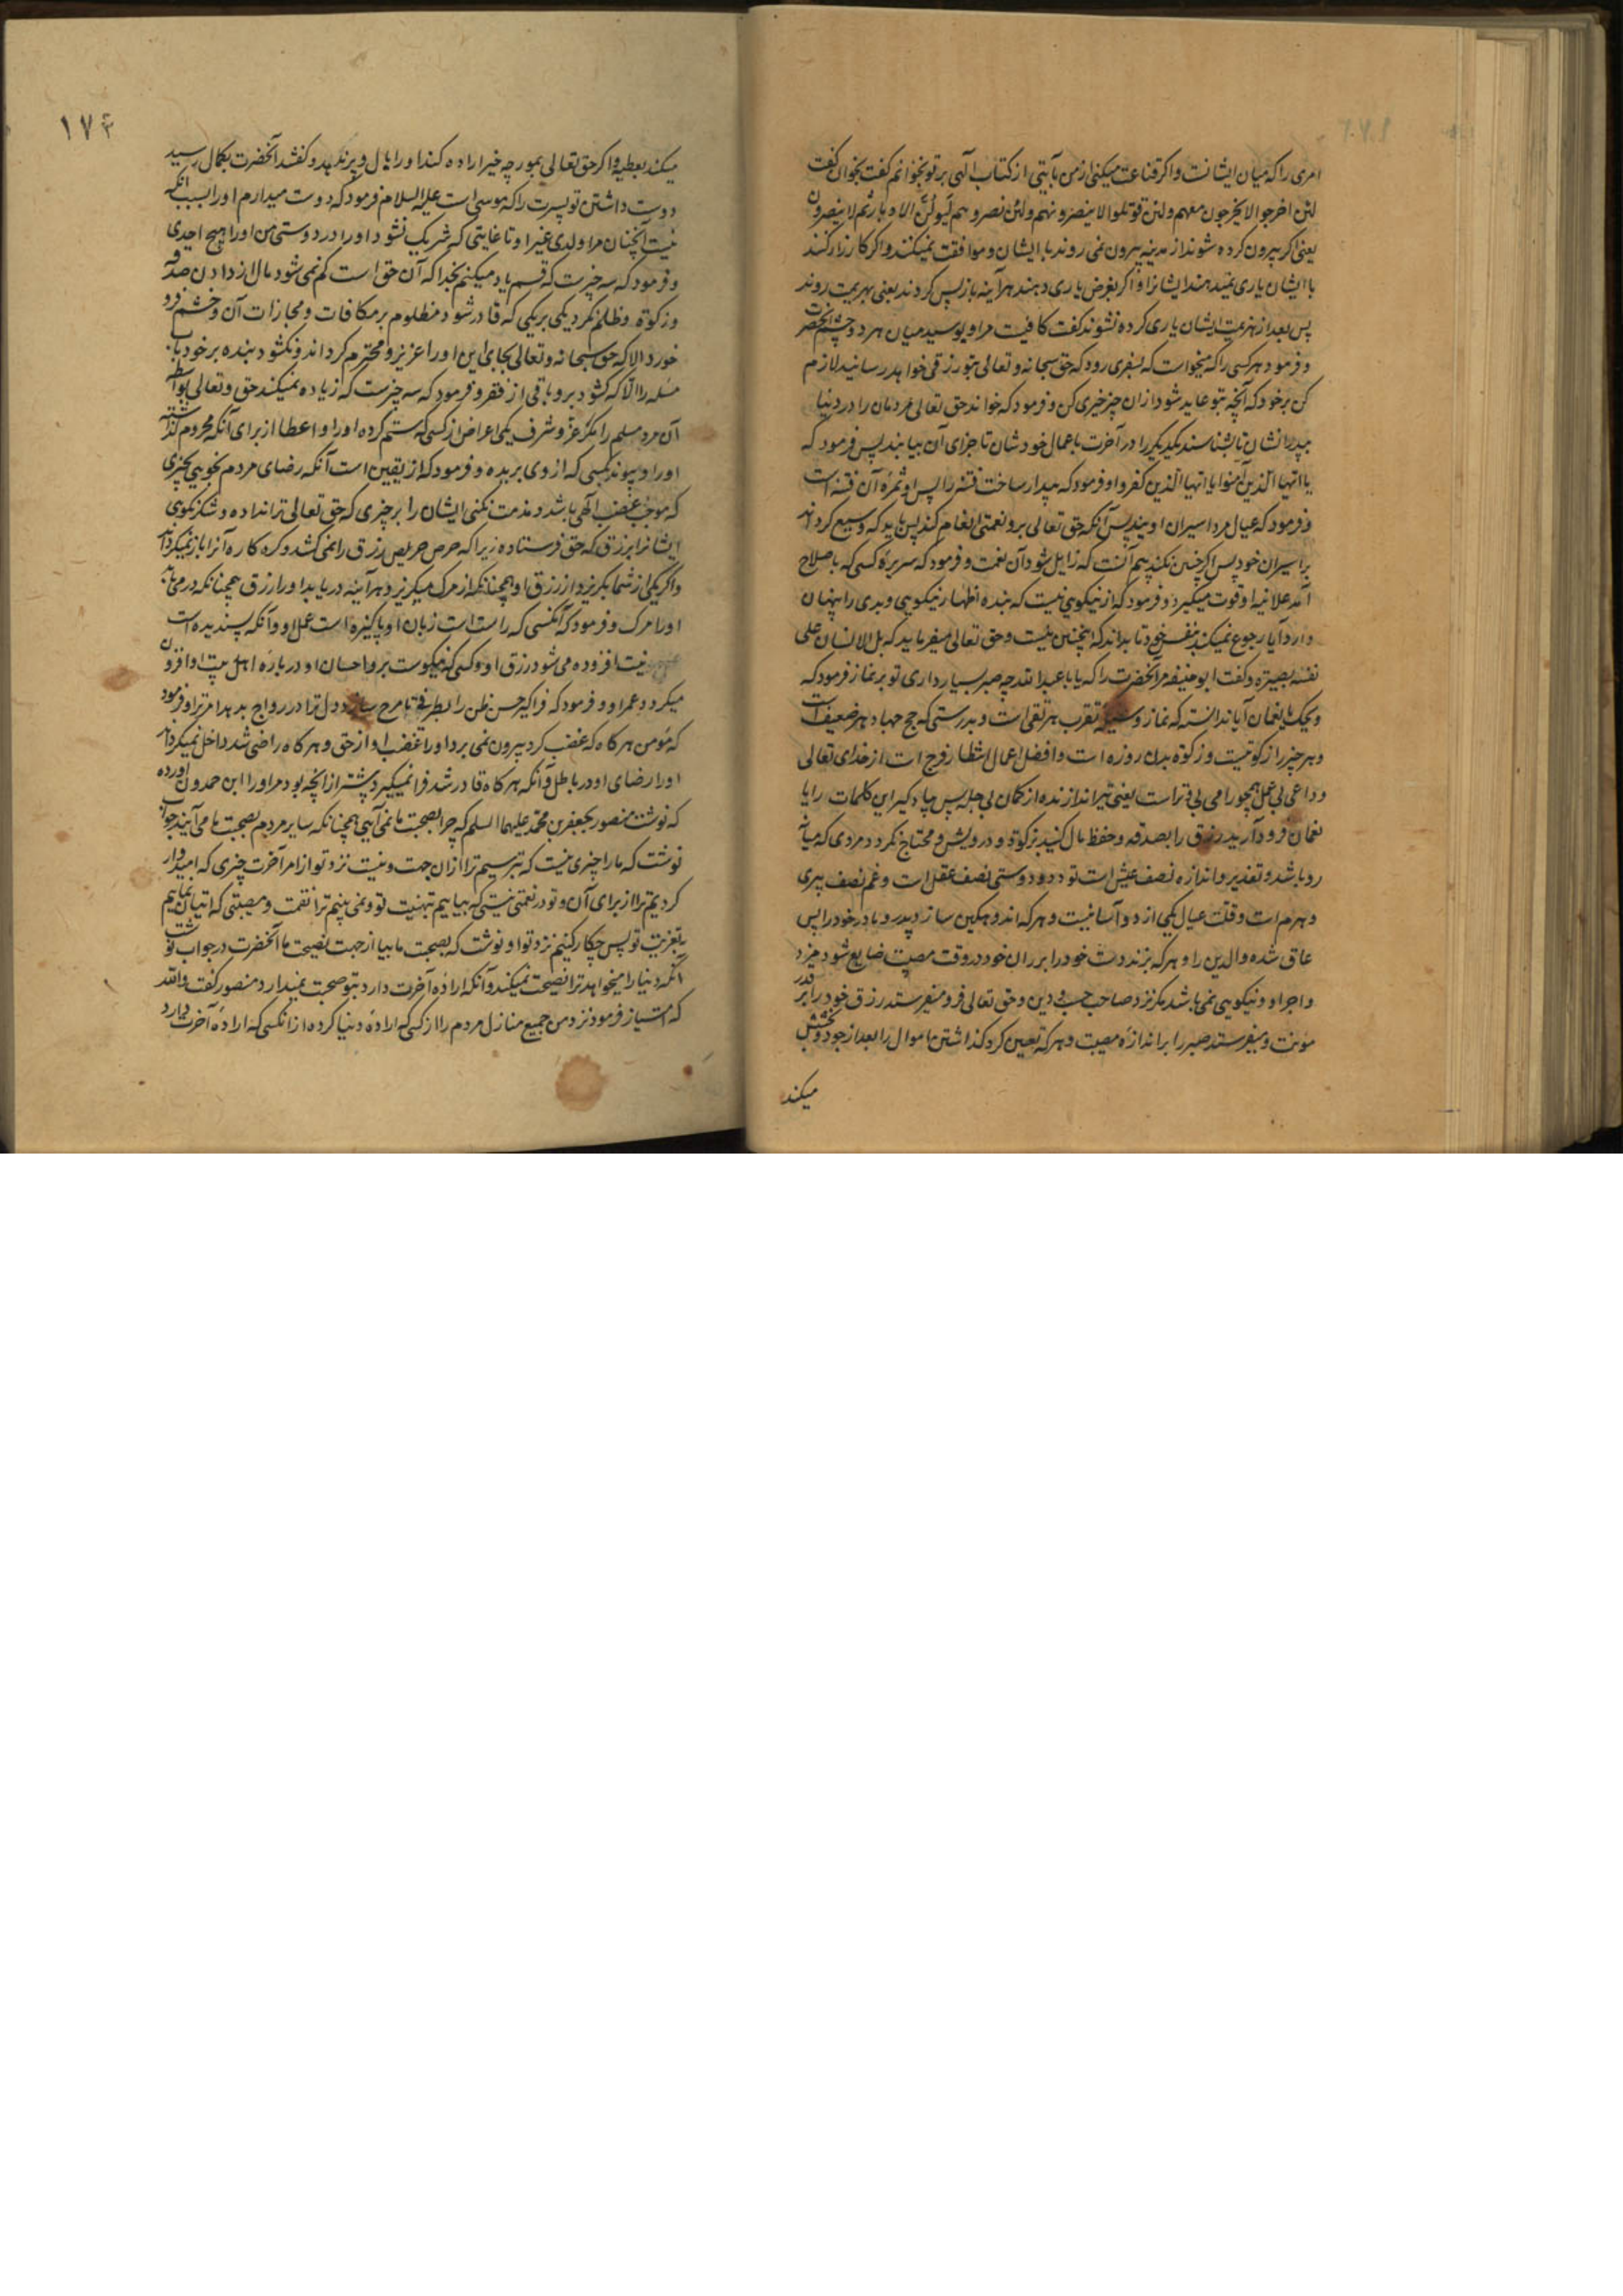 امری را که میان ایشانست و اگر قناعت میکنی از من بآیتی از کتاب الهی بر تو بخوانم گفت بخوان گفت
لئن اخرجوا لا یخرجون معهم ولئن قوتلوا لا ینصرونهم ولئن نصروهم لیولن الادبار ثم لا ینصرون
یعنی اگر بیرون کرده شوند از مدینه بیرون نمی روند با ایشان و موافقت نمیکنند و اگر کارزار کنند
با ایشان یاری نمیدهند ایشانرا و اگر بفرض یاری دهند هرآینه باز پس گردند یعنی بهزیمت روند
پس بعد از هزیمت ایشان یاری کرده نشوند گفت کافیست مرا و بوسید میان هر دو چشم آنحضرت
و فرمود هر کسی را که میخواست که بسفری رود که حق سبحانه و تعالی بتو رزقی خواهد رسانید لازم
کن بر خود که آنچه بتو عاید شود از ان چیز خیری کن و فرمود که خواند حق تعالی مردمان را در دنیا
بپدرانشان تا بشناسند یکدیگر را و در آخرت باعمال خودشان تا جزای آن بیابند پس فرمود که
یا ایها الذین آمنوا یا ایها الذین کفروا و فرمود که بیدار ساخت فتنه را پس او ثمره آن فتنه است
و فرمود که عیال مرد اسیران اویند پس آنکه حق تعالی برو نعمتی انعام کند پس باید که وسیع گرداند
بر اسیران خود پس اگر چنین نکند بیم آنست که زایل شود آن نعمت و فرمود که سریره کسی که باصلاح
آمد علانیه او قوت میگیرد و فرمود که از نیکویی نیست که بنده اظهار نیکویی و بدی را پنهان
دارد آیا رجوع نمیکند بنفس خود تا بداند که اینچنین نیست و حق تعالی میفرماید که بل الانسان علی
نفسه بصیرة و گفت ابو حنیفه مر آنحضرت را که یا با عبدالله چه صبر بسیار داری تو بر نماز فرمود که
ویحک یا نعمان آیا ندانسته که نماز وسیله تقرب هر تقی است و بدرستی که حج جهاد هر ضعیف است
و هر چیز را زکوتیست و زکوة بدن روزه است و افضل اعمال انتظار فرج است از خدای تعالی
و داعی بی عمل همچو رامی بی وتر است یعنی تیر اندازنده از کمان بی چله پس یاد گیر این کلمات را یا
نعمان فرود آرید رزق را بصدقه و حفظ مال کنید بزکوة و درویش و محتاج نگردد مردی که میانه
رو باشد و تقدیر و اندازه نصف عیش است تودد و دوستی نصف عقل است و غم نصف پیری
و هرم است و قلت عیال یکی از دو آسانیست و هر که اندوهگین سازد پدر و مادر خود را پس
عاق شده والدین را و هر که بزند دست خود را بر ران خود در وقت مصیبت ضایع شود مزد
و اجر او و نیکویی نمی باشد مگر نزد صاحب حسب و دین و حق تعالی فرو میفرستد رزق خود را بر قدر
مؤنت و میفرستد صبر را بر اندازه مصیبت و هر که یقین کرد گذاشتن اموال را بعد از جود و بخشش
میکند
۱۷۴
میکند بعطیه و اگر حق تعالی بمورچه خیر اراده کند او را بال و پر ندهد و گفتند آنحضرت بکمال رسید
دوست داشتن تو پسرت را که موسی است علیه السلام فرمود که دوست میدارم او را بسبب آنکه
نیست آنچنان مرا ولدی غیر او تا غایتی که شریک نشود او را در دوستی من او را هیچ احدی
و فرمود که سه چیزست که قسم یاد میکنم بخدا که آن حق است کم نمی شود مال از دادن صدقه
و زکوة و ظلم نکرد یکی بر یکی که قادر شود مظلوم بر مکافات و مجازات آن و خشم فرو
خورد الا که حق سبحانه و تعالی بجای این او را عزیز و محترم گرداند و نگشود بنده بر خود باب
مسئله را الا که گشود برو بابی از فقر و فرمود که سه چیزست که زیاده نمیکند حق و تعالی بواسطه
آن مرد مسلم را مگر عز و شرف یکی اعراض از کسی که ستم کرده او را و اعطا از برای آنکه محروم گذاشته
او را و پیوند بکسی که از وی بریده و فرمود که از یقین است آنکه رضای مردم نجویی بچیزی
که موجب غضب الهی باشد و مذمت نکنی ایشان را بر چیزی که حق تعالی ترا نداده و شکر نگوی
ایشانرا بر رزق که حق فرستاده زیرا که حرص حریص رزق را نمی کشد و کره کاره آنرا باز نمیگرداند
و اگر یکی از شما بگریزد از رزق او همچنانکه از مرگ میگریزد هرآینه دریابد او را رزق همچنانکه در می یابد
او را مرگ و فرمود که آنکسی که راست است زبان او پاکیزه است عمل او و آنکه پسندیده است
نیت افزوده می شود رزق او و کسی که نیکوست بر و احسان او در باره اهل بیت او افزون
میگردد عمر او و فرمود که فراگیر حسن ظن را بطرفی تا مرح سازد دل ترا در رواج بدهد امر ترا و فرمود
که مؤمن هر گاه که غضب کرد بیرون نمی برد او را غضب او از حق و هر گاه راضی شد داخل نمیگرداند
او را رضای او در باطل و آنکه هر گاه قادر شد فرا نمیگیرد بیشتر از آنچه بود مر او را ابن حمدون آورده
که نوشت منصور بجعفر بن محمد علیهما السلم که چرا بصحبت ما نمی آیی همچنانکه سایر مردم بصحبت ما می آیند جواب
نوشت که ما را چیزی نیست که بترسیم ترا ازان جهت و نیست نزد تو از امر آخرت چیزی که امیدوار
گردیم ترا از برای آن و تو در نعمتی نیستی که بیاییم تهنیت تو و نمی بینیم ترا نقمت و مصیبتی که اتیان نماییم
بتعزیت تو پس چکار کنیم نزد تو او نوشت که بصحبت ما بیا از جهت نصیحت ما آنحضرت در جواب نوشت
آنکه دنیا را میخواهد ترا نصیحت نمیکند و آنکه اراده آخرت دارد بتو صحبت نمیدارد منصور گفت والله
که امتیاز فرمود نزد من جمیع منازل مردم را از کسی که اراده دنیا کرده از آنکسی که اراده آخرت دارد